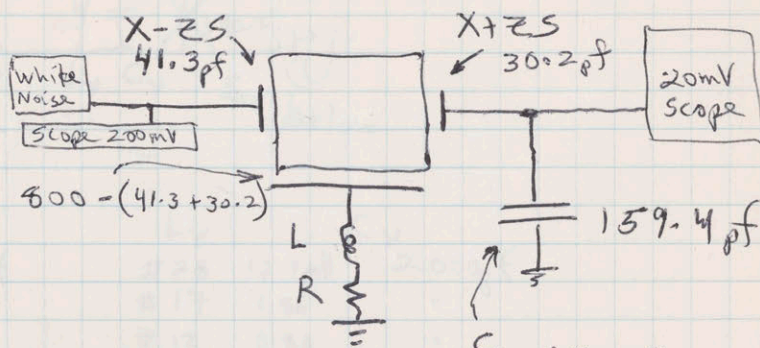 X-ZS
41.3pf
X+ZS
30.2pf
White
Noise
Scope 200mV
20mV
Scope
800-(41.3+30.2)
L
R
159.4pf